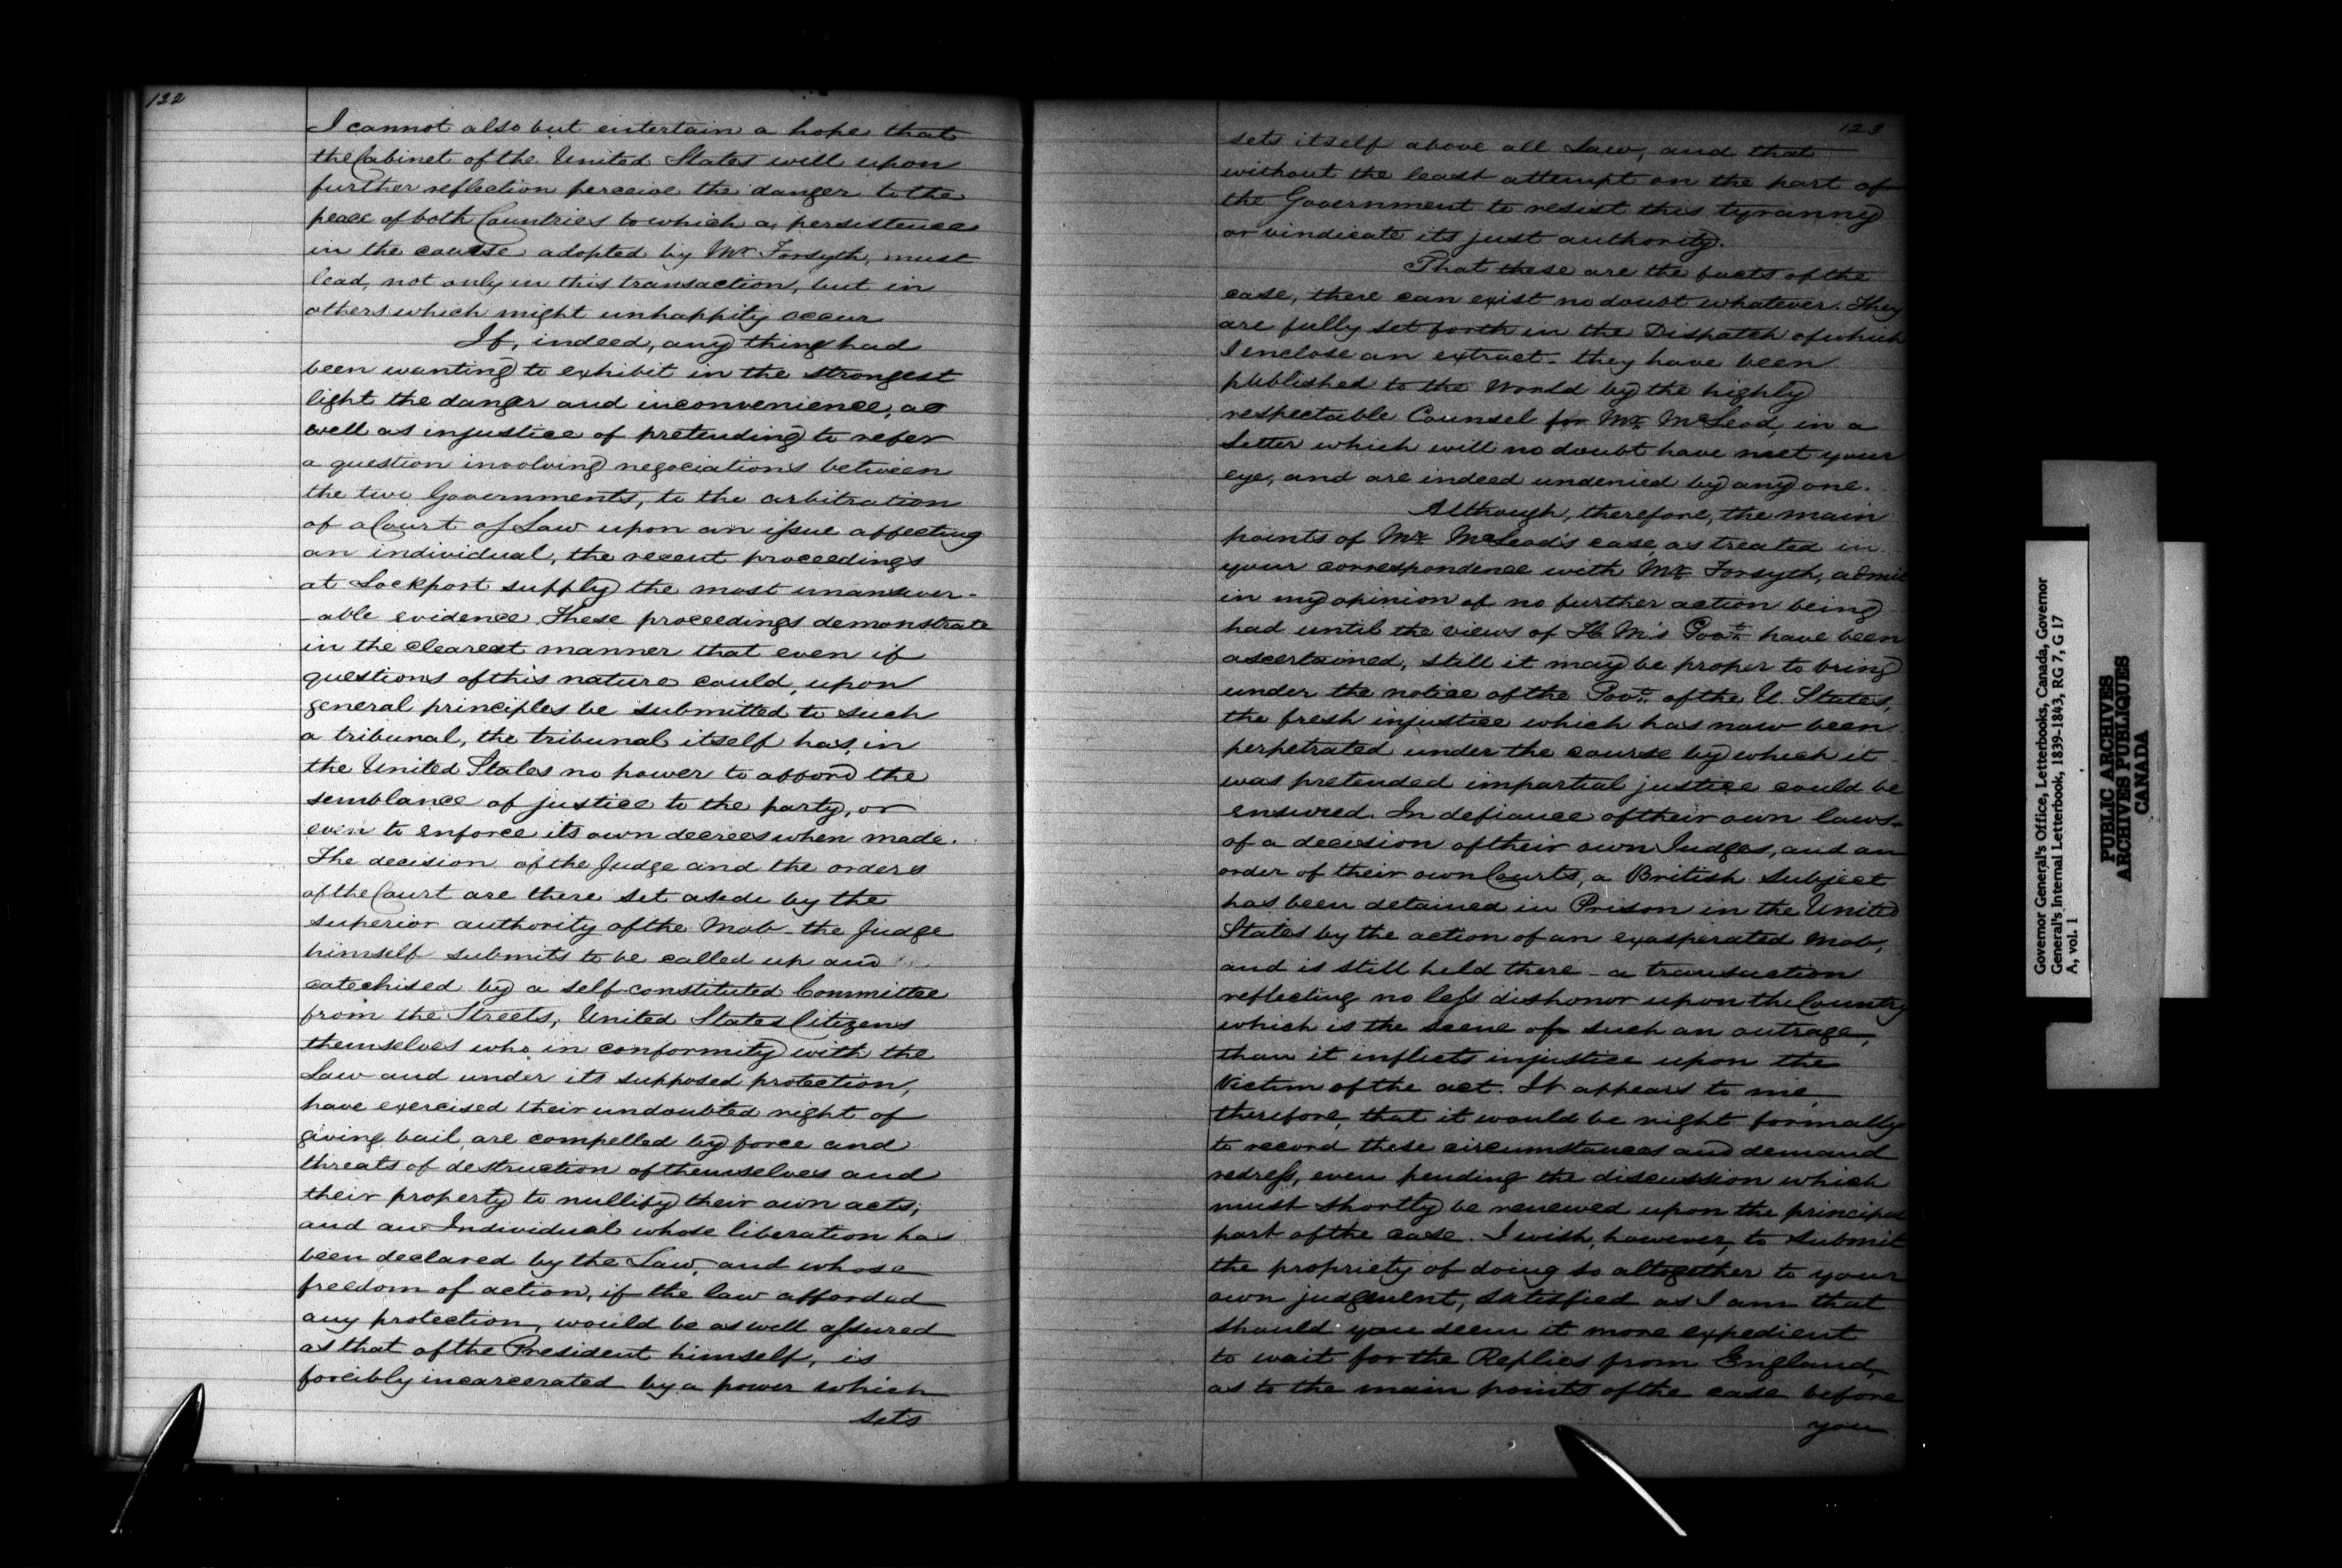 122
I cannot also but entertain a hope that
the Cabinet of the United States will upon
further reflection perceive the danger to the
peace of both Countries to which a persistence
in the course adopted by Mr Forsyth, must
lead, not only in this transaction, but in
others which might unhappily occur
If, indeed, any thing had
been wanting to exhibit in the strongest
light the danger and inconvenience, as
well as injustice of pretending to refer
a question involving negociations between
the two Governments, to the arbitration
of a Court of Law upon an issue affecting
an individual, the recent proceedings
at Lockport supply the most unanswer-
-able evidence. These proceedings demonstrate
in the clearest manner that even if
questions of this nature could, upon
general principles be submitted to such
a tribunal, the tribunal itself has, in
the United States no power to afford the
semblance of justice to the party, or
even to enforce its own decrees when made.
The decision of the Judge and the orders
of the Court are there set aside by the
superior authority of the Mob - the Judge
himself submits to be called up and
catechised by a self-constituted Committee
from the Streets, United States Citizens
themselves who in conformity with the
Law and under its supposed protection,
have exercised their undoubted right of
giving bail, are compelled by force and
threats of destruction of themselves and
their property to nullify their own acts;
and an Individual whose liberation has
been declared by the Law, and whose
freedom of action, if the law afforded
any protection, would be as well assured
as that of the President himself, is
forcibly incarcerated by a power which
sets
123
sets itself above all Law, and that
without the least attempt on the part of
the Government to resist this tyranny
or vindicate its just authority.
That these are the facts of the
case, there can exist no doubt whatever. They
are fully set forth in the Dispatch of which
I enclose an extract - they have been
published to the World by the highly
respectable Counsel for Mr. McLeod, in a
letter which will no doubt have met your
eye, and are indeed undenied by any one.
Although, therefore, the main
points of Mr. McLeod's case, as treated in
your correspondence with Mr. Forsyth, admit
in my opinion of no further action being
had until the views of H. M's Govt. have been
ascertained, still it may be proper to bring
under the notice of the Govt. of the U. States,
the fresh injustice which has now been
perpetrated under the course by which it
was pretended impartial justice could be
ensured. In defiance of their own laws -
of a decision of their own Judges, and an
order of their own Courts, a British Subject
has been detained in Prison in the United
States by the action of an exasperated Mob,
and is still held there - a transaction
reflecting no less dishonor upon the Country
which is the scene of such an outrage,
than it inflicts injustice upon the
Victim of the act. It appears to me,
therefore, that it would be right formally
to record these circumstances and demand
redress, even pending the discussion which
must shortly be renewed upon the principal
part of the case. I wish, however, to submit
the propriety of doing so altogether to your
own judgment, satisfied as I am that
should you deem it more expedient
to wait for the Replies from England,
as to the main points of the case before
you
Governor General's Office, Letterbooks, Canada, Governor
General's Internal Letterbook, 1839-1843, RG 7, G 17
A, vol. 1
PUBLIC ARCHIVES
ARCHIVES PUBLIQUES
CANADA